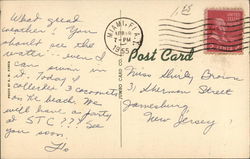 1.50
MIAMI, FLA.
7-PM
1955
Post Card
What great
weather! You
should see the
water -- even I
can swim in
it. Today I
collected 3 coconuts
on the beach. We
will have a party
at STC ?? See
you soon.
Flo
Miss Shirley Brown
31 Sherman Street
Jamesburg
New Jersey